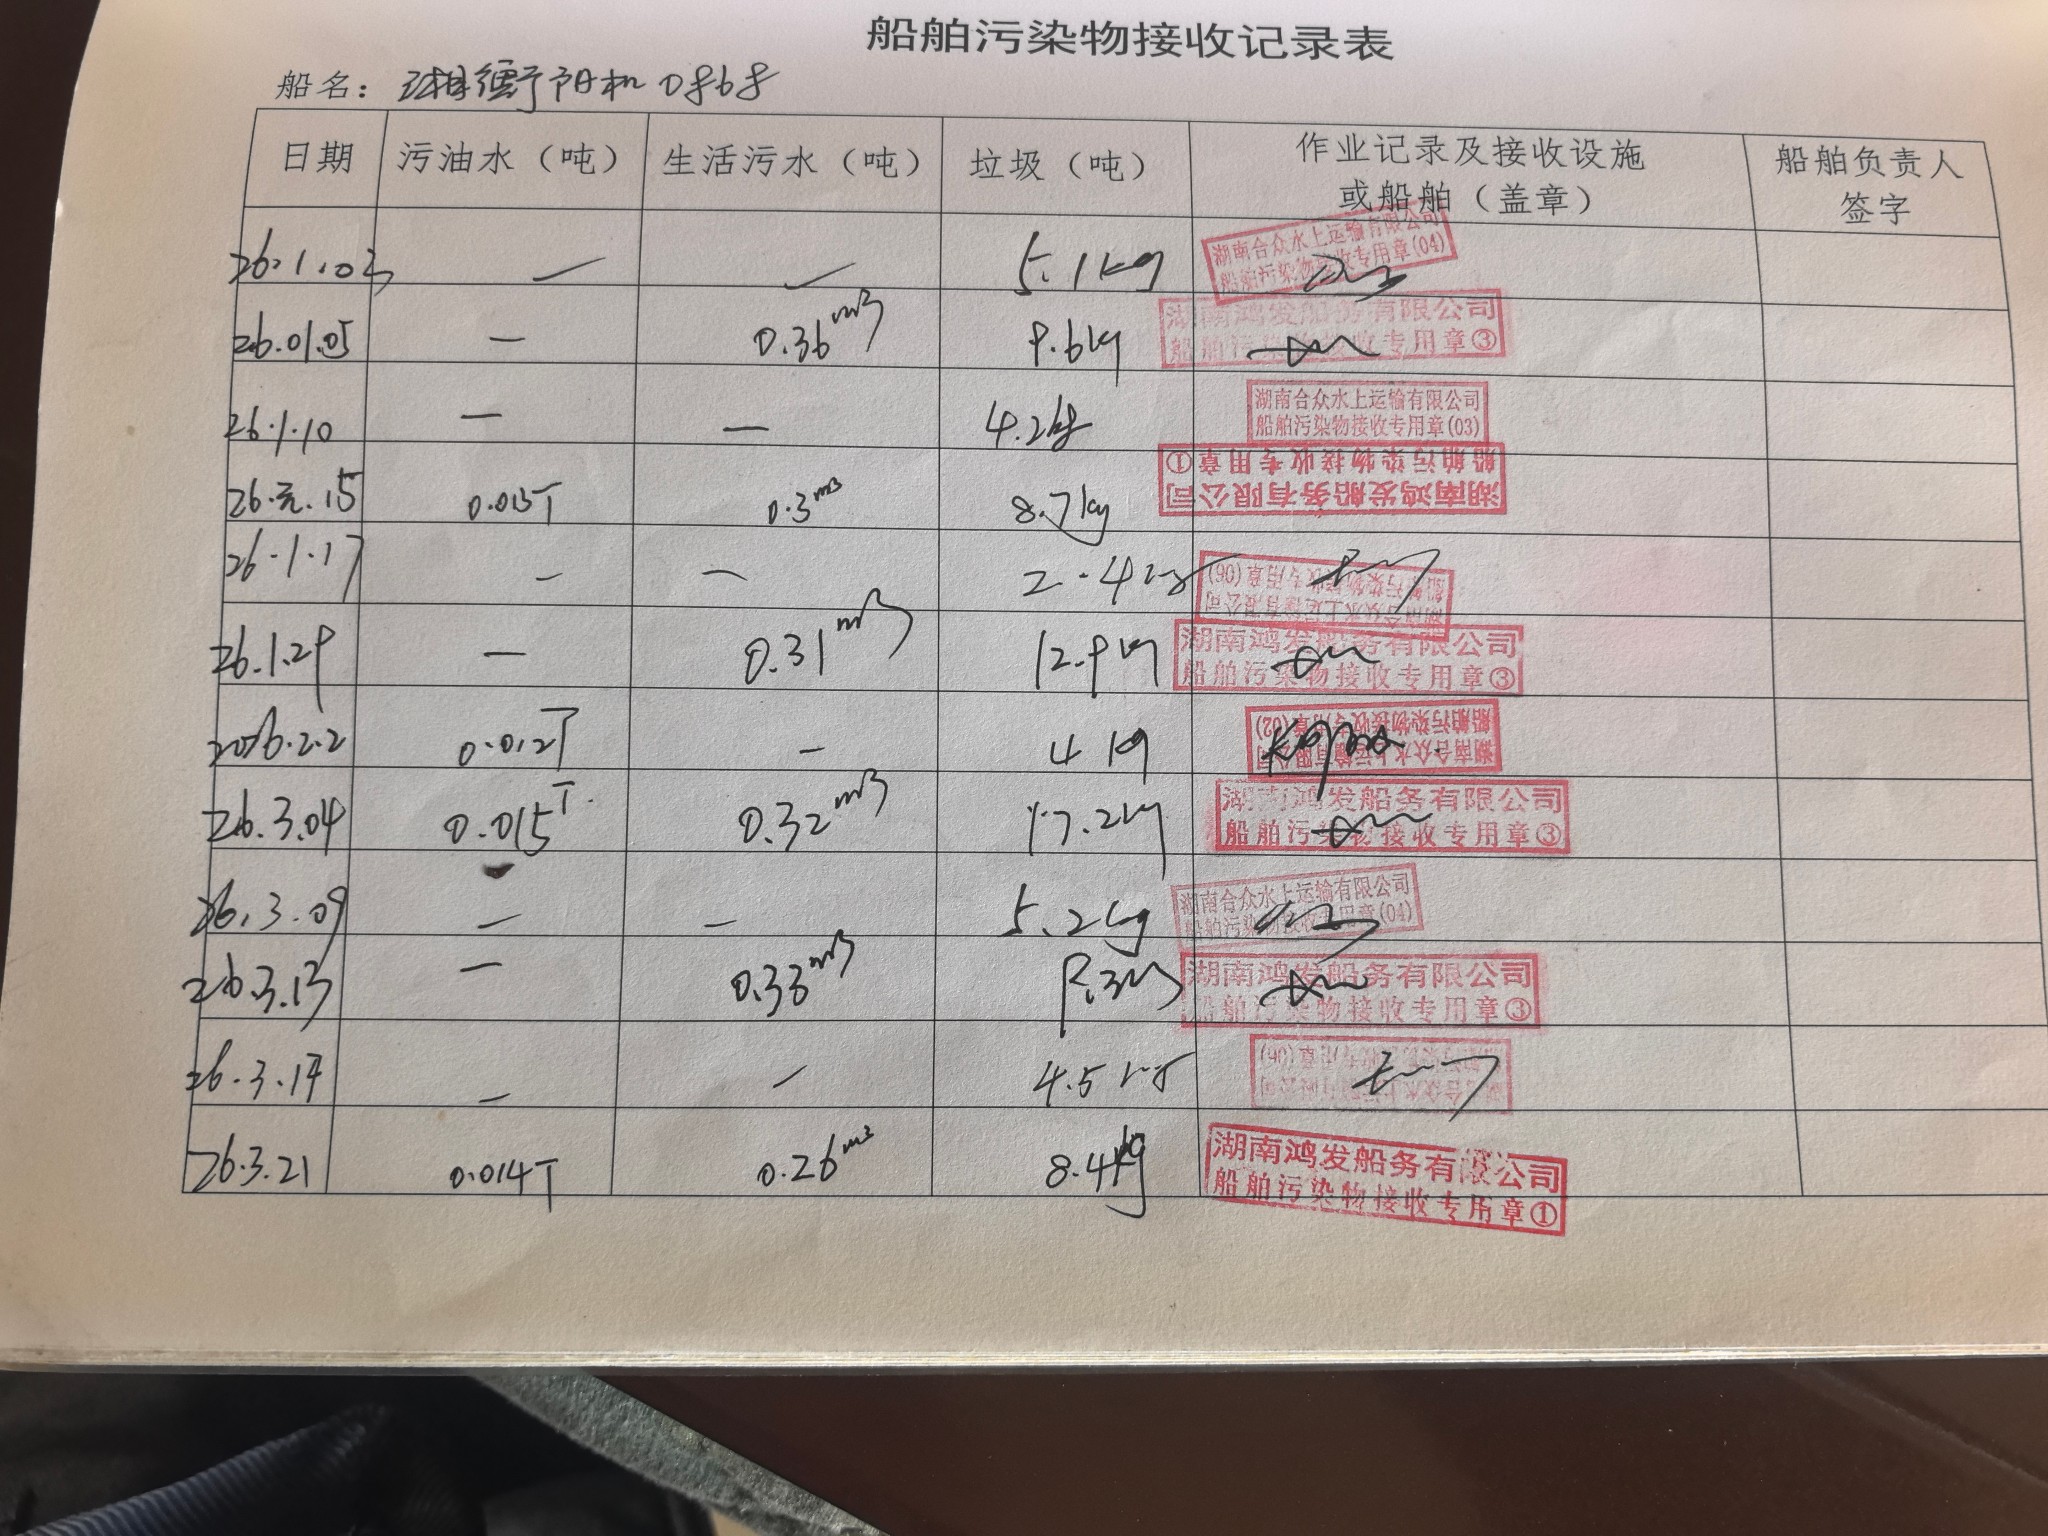 船舶污染物接收记录表
船名：湘衡阳机
日期 污油水（吨） 生活污水（吨） 垃圾（吨） 作业记录及接收设施或船舶（盖章） 船舶负责人签字
26.1.03 — — 5.1kg 湖南合众水上运输有限公司 船舶污染物接收专用章(04)
26.01.05 — 0.36m³ 9.6kg 湖南鸿发船务有限公司 船舶污染物接收专用章③
26.1.10 — — 4.2kg 湖南合众水上运输有限公司 船舶污染物接收专用章(03)
26.元.15 0.013T 0.3m³ 8.7kg 湖南鸿发船务有限公司 船舶污染物接收专用章①
26.1.17 — — 2.4kg 湖南合众水上运输有限公司 船舶污染物接收专用章(06)
26.1.29 — 0.31m³ 12.9kg 湖南鸿发船务有限公司 船舶污染物接收专用章③
2026.2.2 0.012T — 4kg 湖南合众水上运输有限公司 船舶污染物接收专用章(02)
26.3.04 0.015T 0.32m³ 17.2kg 湖南鸿发船务有限公司 船舶污染物接收专用章③
26.3.09 — — 5.2kg 湖南合众水上运输有限公司 船舶污染物接收专用章(04)
26.3.13 — 0.33m³ 9.3kg 湖南鸿发船务有限公司 船舶污染物接收专用章③
26.3.17 — — 4.5kg 湖南合众水上运输有限公司 船舶污染物接收专用章(06)
26.3.21 0.014T 0.26m³ 8.4kg 湖南鸿发船务有限公司 船舶污染物接收专用章①